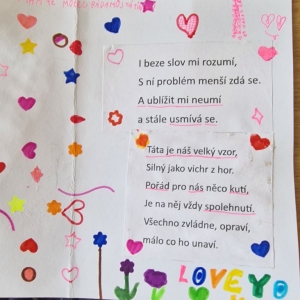 I beze slov mi rozumí,
S ní problém menší zdá se.
A ublížit mi neumí
a stále usmívá se.
Táta je náš velký vzor,
Silný jako vichr z hor.
Pořád pro nás něco kutí,
Je na něj vždy spolehnutí.
Všechno zvládne, opraví,
málo co ho unaví.
LOVE YO